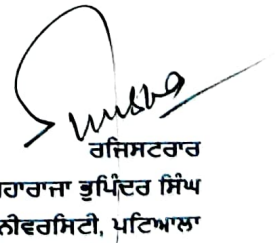 ਰਜਿਸਟਰਾਰ
ਹਾਰਾਜਾ ਭੁਪਿੰਦਰ ਸਿੰਘ
ਨੀਵਰਸਿਟੀ, ਪਟਿਆਲਾ